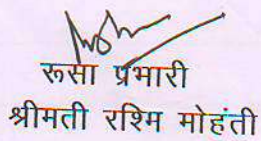 रूसा प्रभारी
श्रीमती रश्मि मोहंती